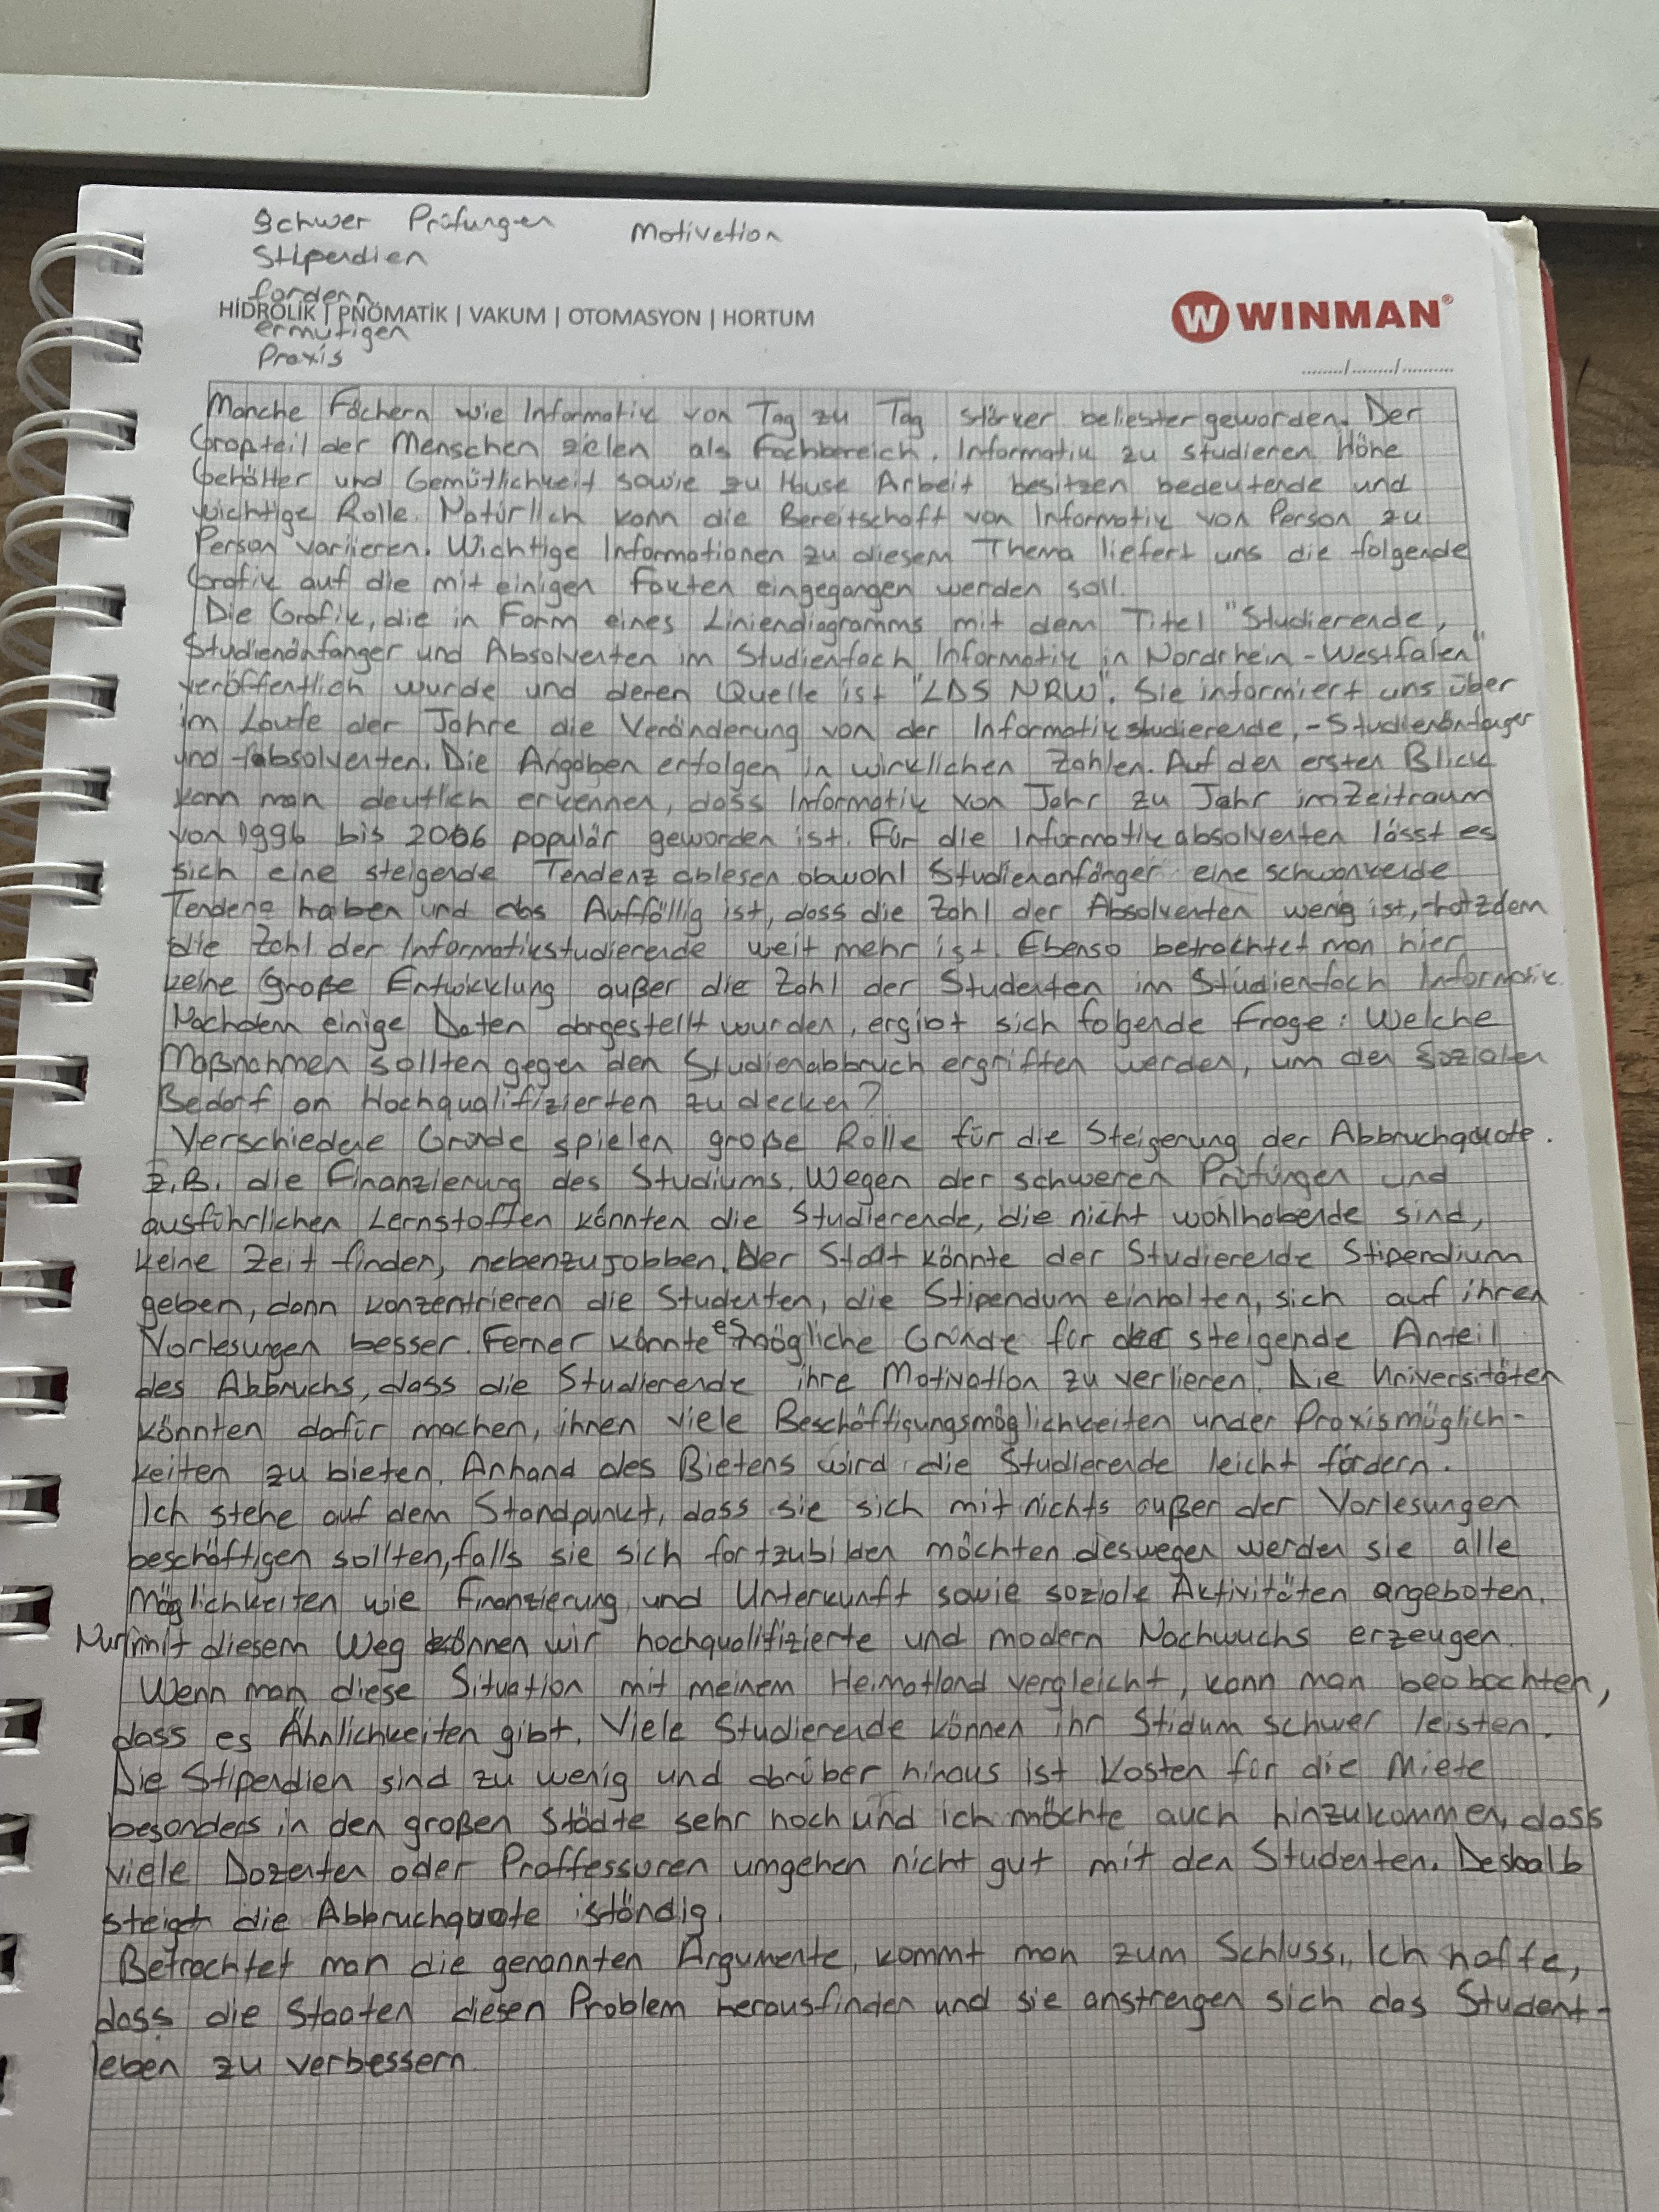 Schwer Prüfungen Motivation
Stipendien
fordern
HİDROLİK | PNÖMATİK | VAKUM | OTOMASYON | HORTUM
W WINMAN®
ermutigen
Praxis
......../......../..........
Manche Fächern wie Informatik von Tag zu Tag stärker beliebter geworden. Der
Großteil der Menschen zielen als Fachbereich, Informatik zu studieren. Höhe
Gehälter und Gemütlichkeit sowie zu Hause Arbeit besitzen bedeutende und
wichtige Rolle. Natürlich kann die Bereitschaft von Informatik von Person zu
Person variieren. Wichtige Informationen zu diesem Thema liefert uns die folgende
Grafik auf die mit einigen Fakten eingegangen werden soll.
Die Grafik, die in Form eines Liniendiagramms mit dem Titel "Studierende,
Studienänfänger und Absolventen im Studienfach Informatik in Nordrhein-Westfalen"
veröffentlich wurde und deren Quelle ist "LDS NRW". Sie informiert uns über
im Laufe der Jahre die Veränderung von der Informatikstudierende, -Studienänfanger
und -absolventen. Die Angaben erfolgen in wirklichen Zahlen. Auf den ersten Blick
kann man deutlich erkennen, dass Informatik von Jahr zu Jahr im Zeitraum
von 1996 bis 2006 populär geworden ist. Für die Informatikabsolventen lässt es
sich eine steigende Tendenz ablesen obwohl Studienanfänger eine schwankende
Tendenz haben und das Auffällig ist, dass die Zahl der Absolventen wenig ist, trotzdem
die Zahl der Informatikstudierende weit mehr ist. Ebenso betrachtet man hier
keine große Entwicklung außer die Zahl der Studenten im Studienfach Informatik.
Nachdem einige Daten dargestellt wurden, ergibt sich folgende Frage: Welche
Maßnahmen sollten gegen den Studienabbruch ergriffen werden, um den Sozialen
Bedarf an Hochqualifizierten zu decken?
Verschiedene Gründe spielen große Rolle für die Steigerung der Abbruchquote.
z.B. die Finanzierung des Studiums. Wegen der schweren Prüfungen und
ausführlichen Lernstoffen könnten die Studierende, die nicht wohlhabende sind,
keine Zeit finden, nebenzujobben. Der Staat könnte der Studierende Stipendium
geben, dann konzentrieren die Studenten, die Stipendum einhalten, sich auf ihren
Vorlesungen besser. Ferner könnte es mögliche Gründe für der steigende Anteil
des Abbruchs, dass die Studierende ihre Motivation zu verlieren. Die Universitäten
könnten dafür machen, ihnen viele Beschäftigungsmöglichkeiten under Praxismöglich-
keiten zu bieten. Anhand des Bietens wird die Studierende leicht fördern.
Ich stehe auf dem Standpunkt, dass sie sich mit nichts außer der Vorlesungen
beschäftigen sollten, falls sie sich fortzubilden möchten deswegen werden sie alle
Möglichkeiten wie Finanzierung und Unterkunft sowie soziale Aktivitäten angeboten.
Nur mit diesem Weg können wir hochqualifizierte und modern Nachwuchs erzeugen.
Wenn man diese Situation mit meinem Heimatland vergleicht, kann man beobachten,
dass es Ähnlichkeiten gibt. Viele Studierende können ihr Stidum schwer leisten.
Die Stipendien sind zu wenig und darüber hinaus ist Kosten für die Miete
besonders in den großen Städte sehr hoch und ich möchte auch hinzukommen, dass
viele Dozenten oder Proffessuren umgehen nicht gut mit den Studenten. Deshalb
steigt die Abbruchquote ständig.
Betrachtet man die genannten Argumente, kommt man zum Schluss, Ich hoffe,
dass die Staaten diesen Problem herausfinden und sie anstrengen sich das Student-
leben zu verbessern.